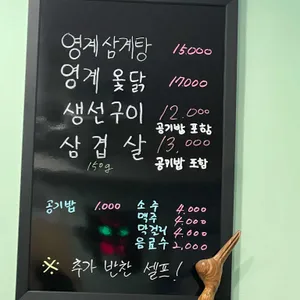 영계 삼계탕 15,000
영계 옻닭 17,000
생선구이 12,000
공기밥 포함
삼겹살 13,000
150g 공기밥 포함
공기밥 1,000 소주 4,000
맥주 4,000
막걸리 4,000
음료수 2,000
※ 추가 반찬 셀프!